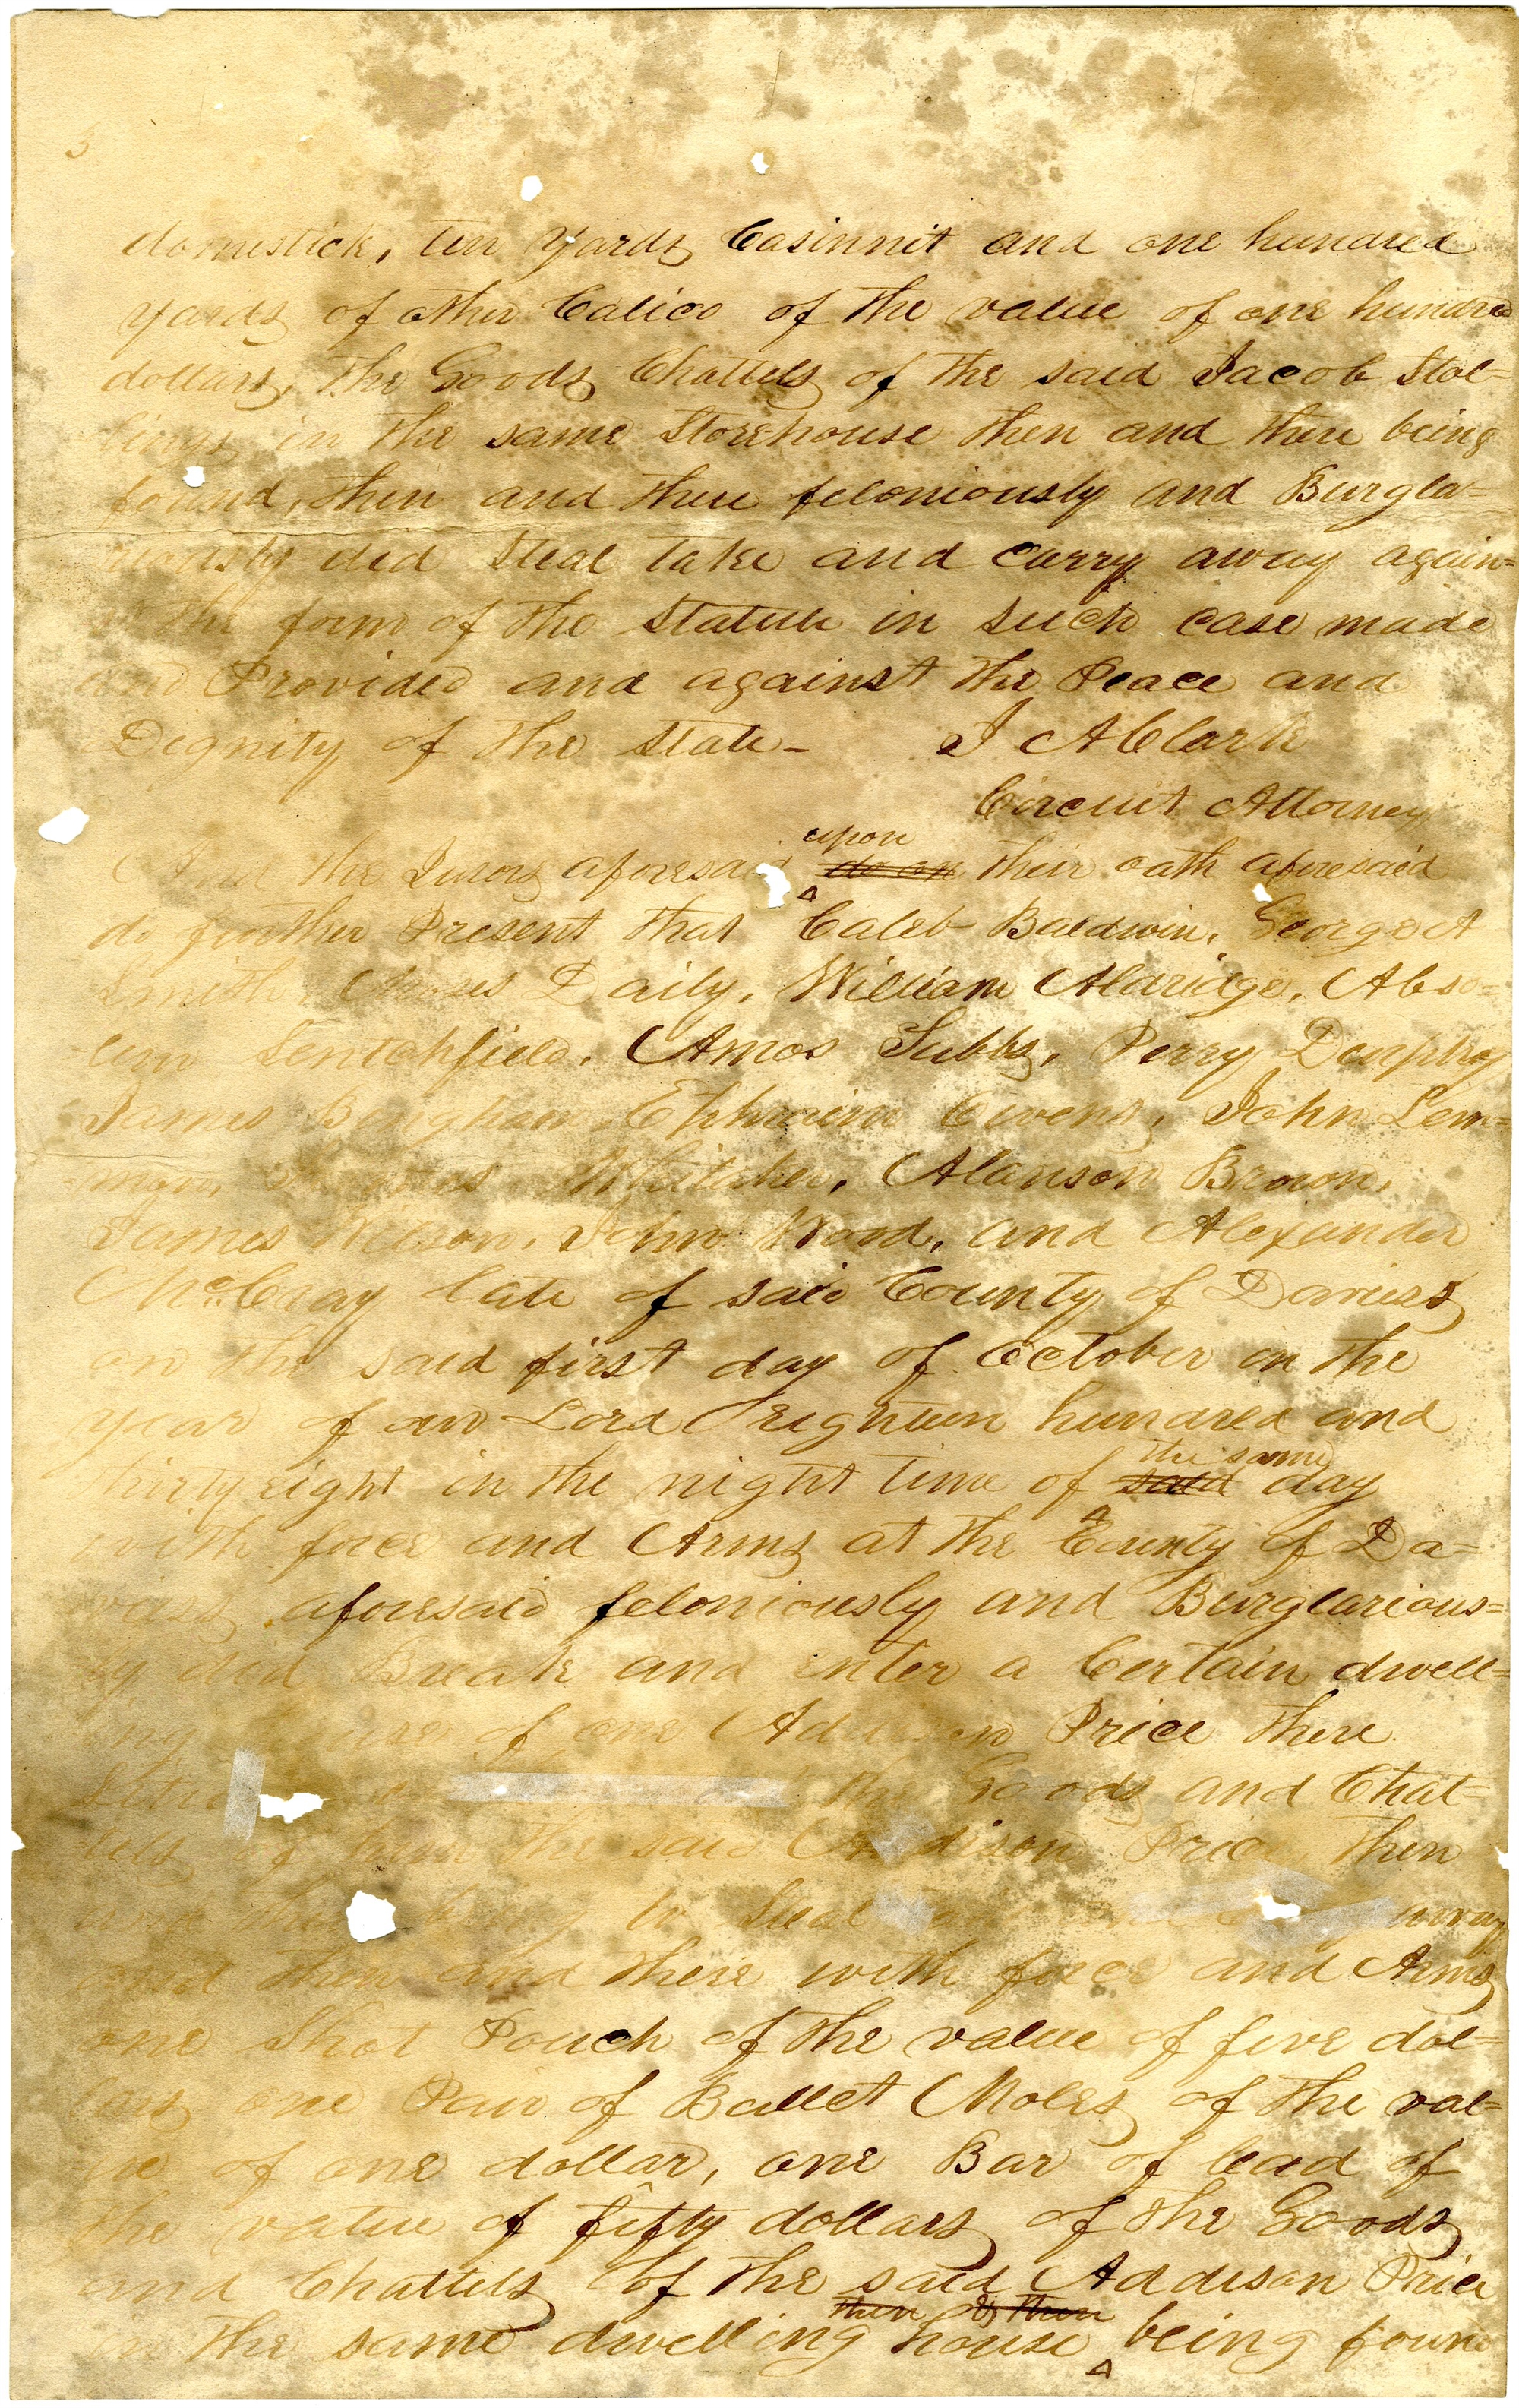 5
domestick, ten yards Casinnit and one hundred
yards of other Calico of the value of one hundred
dollars, the Goods Chattels of the said Jacob Stol=
lings in the same Storehouse then and there being
found, then and there feloniously and Burgla=
riously did Steal take and carry away again=
the form of the Statute in such case made
and Provided and against the Peace and
Dignity of the State - J A Clark
Circuit Attorney
upon
And the Jurors aforesaid do on their oath aforesaid
do further Present that Caleb Baldwin, George A
Smith, Moses Daily, William Aldridge, Abso=
lem Lentchfield, Amos Tubbs, Perry Durphey
James Bingham, Ephraim Owens, John Lem=
mon, Whitaker, Alanson Brown,
James Wilson, John Wood, and Alexander
McCray late of said County of Daviess
on the said first day of October in the
year of our Lord Eighteen hundred and
the same
thirty eight in the night time of said day
with force and Arms at the County of Da=
viess aforesaid feloniously and Burglarious=
ly did Break and enter a Certain dwell=
ing house of one Addison Price there
the Goods and Chat=
tels of him the said Addison Price, then
and there to Steal away
and then and there with force and Arms
one Shot Pouch of the value of five dol=
lars one Pair of Bullet Moles of the val=
ue of one dollar, one Bar of lead of
the value of fifty dollars of the Goods
and Chattels of the said Addison Price
then & then
in the same dwelling house being foun